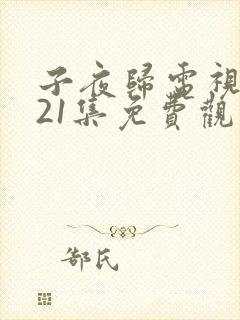 子夜歸電視
21集免費觀
郜氏